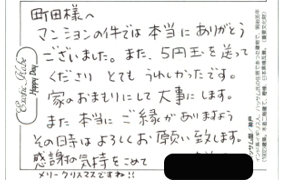 町田様へ
マンションの件では本当にありがとう
ございました。また、5円玉を送って
くださり とても うれしかったです。
家のおまもりにして 大事にします。
また 本当に ご縁が ありますよう
その日時は よろしくお願い致します。
感謝の気持をこめて
メリークリスマスですね!!
Exotic Kobe
Happy Day